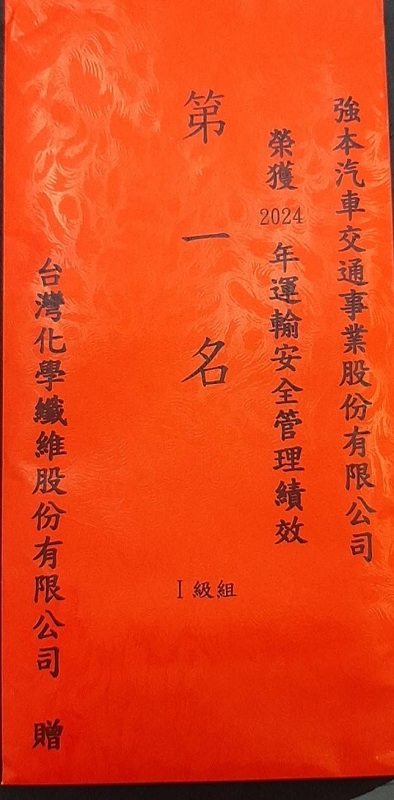 強本汽車交通事業股份有限公司
榮獲2024年運輸安全管理績效
第一名
I級組
台灣化學纖維股份有限公司 贈